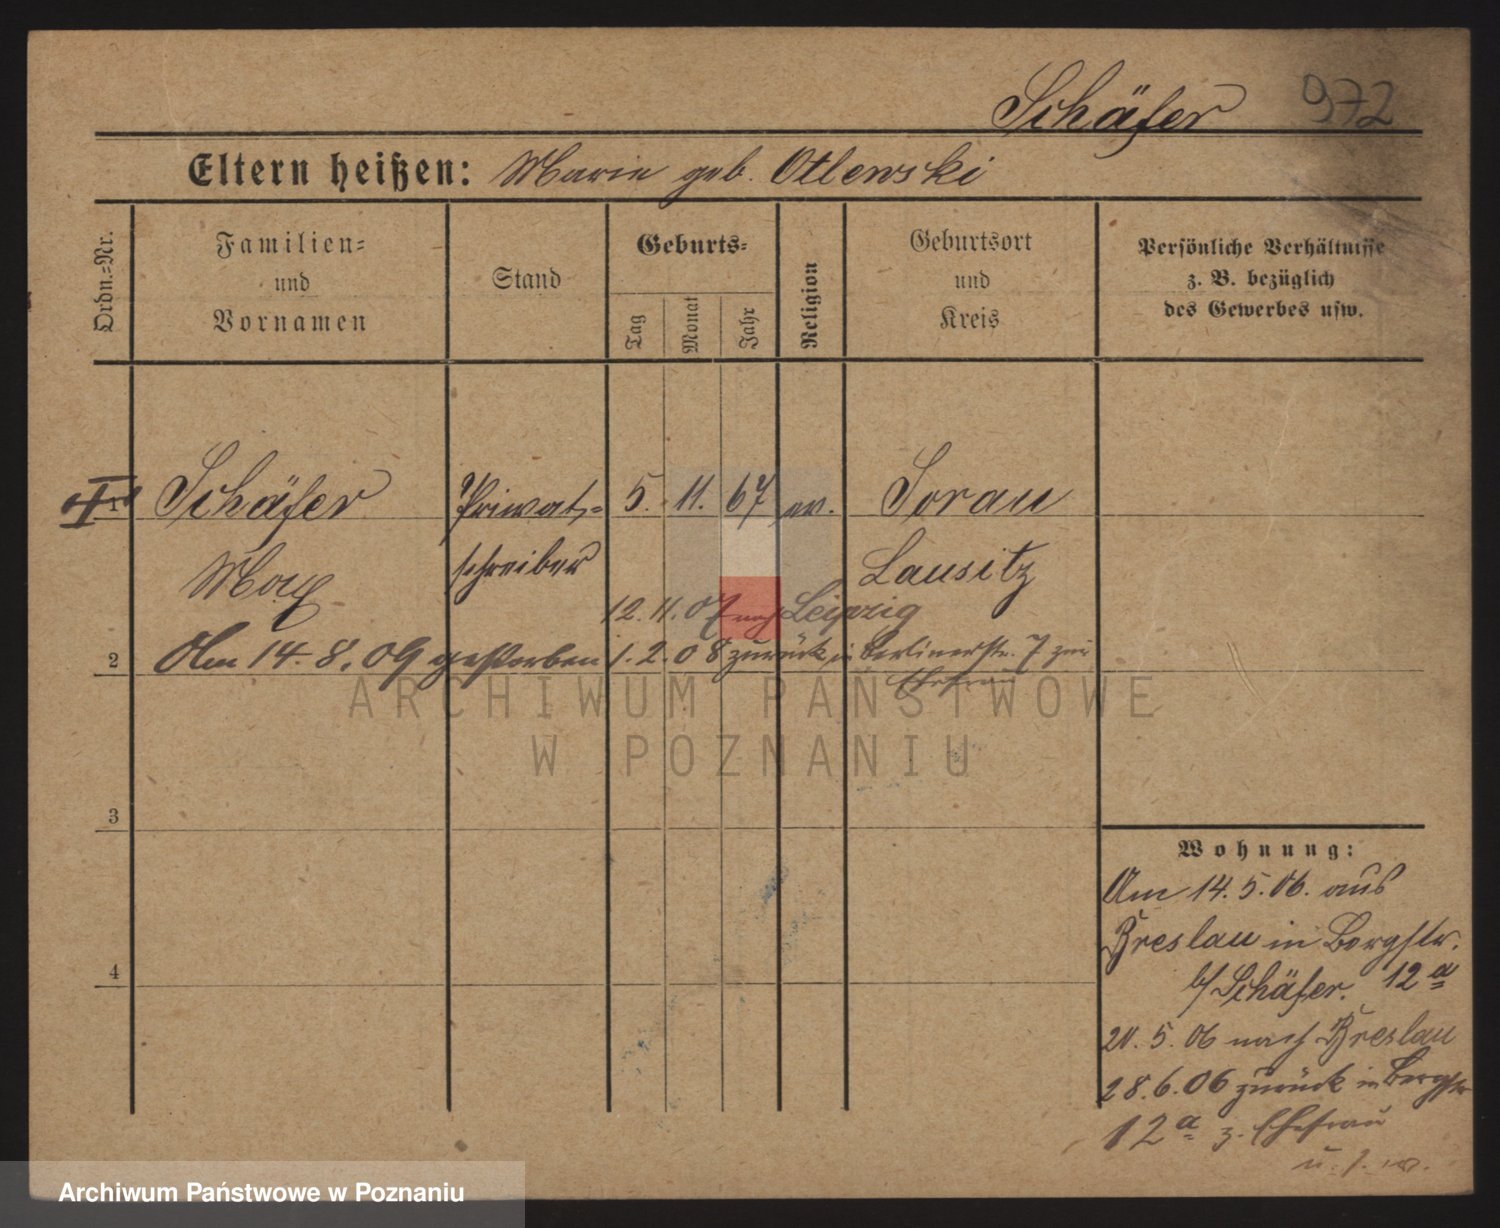 Schäfer 972
Eltern heißen: Marie geb. Otlewski
Ordn.=Nr.
Familien=
und
Vornamen
Stand
Geburts=
Tag
Monat
Jahr
Religion
Geburtsort
und
Kreis
Persönliche Verhältnisse
z. B. bezüglich
des Gewerbes usw.
1 Schäfer Privat= 5. 11. 67 ev. Sorau
Max schreiber Lausitz
12. 11. 07 nach Leipzig
2 Am 14. 8. 09 gestorben 1. 2. 08 zurück in Berlinerstr. 7 zur
Ehefrau
ARCHIWUM PAŃSTWOWE
W POZNANIU
3
4
Wohnung:
Am 14. 5. 06. aus
Breslau in Bergstr.
b/ Schäfer. 12a
20. 5. 06 nach Breslau
28. 6. 06 zurück in Bergstr
12a z. Ehefrau
u. s. w.
Archiwum Państwowe w Poznaniu